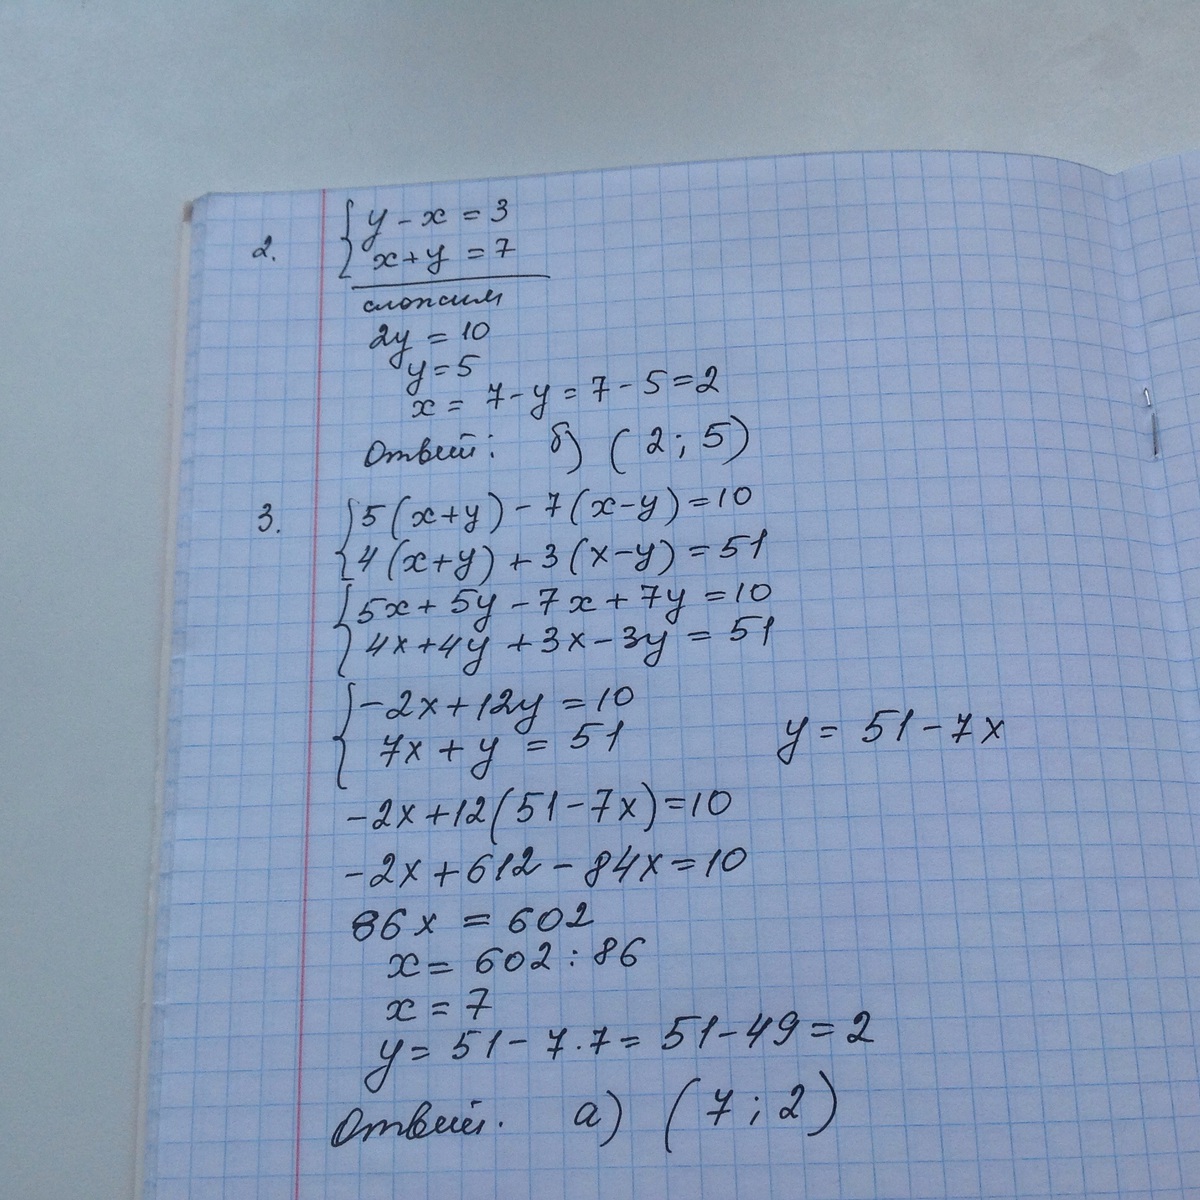 2. { y - x = 3
x + y = 7
сложим
2y = 10
y = 5
x = 7 - y = 7 - 5 = 2
Ответ: б) (2; 5)
3. { 5(x+y) - 7(x-y) = 10
4(x+y) + 3(x-y) = 51
{ 5x + 5y - 7x + 7y = 10
4x + 4y + 3x - 3y = 51
{ -2x + 12y = 10
7x + y = 51 y = 51 - 7x
-2x + 12(51 - 7x) = 10
-2x + 612 - 84x = 10
86x = 602
x = 602 : 86
x = 7
y = 51 - 7·7 = 51 - 49 = 2
Ответ. а) (7; 2)